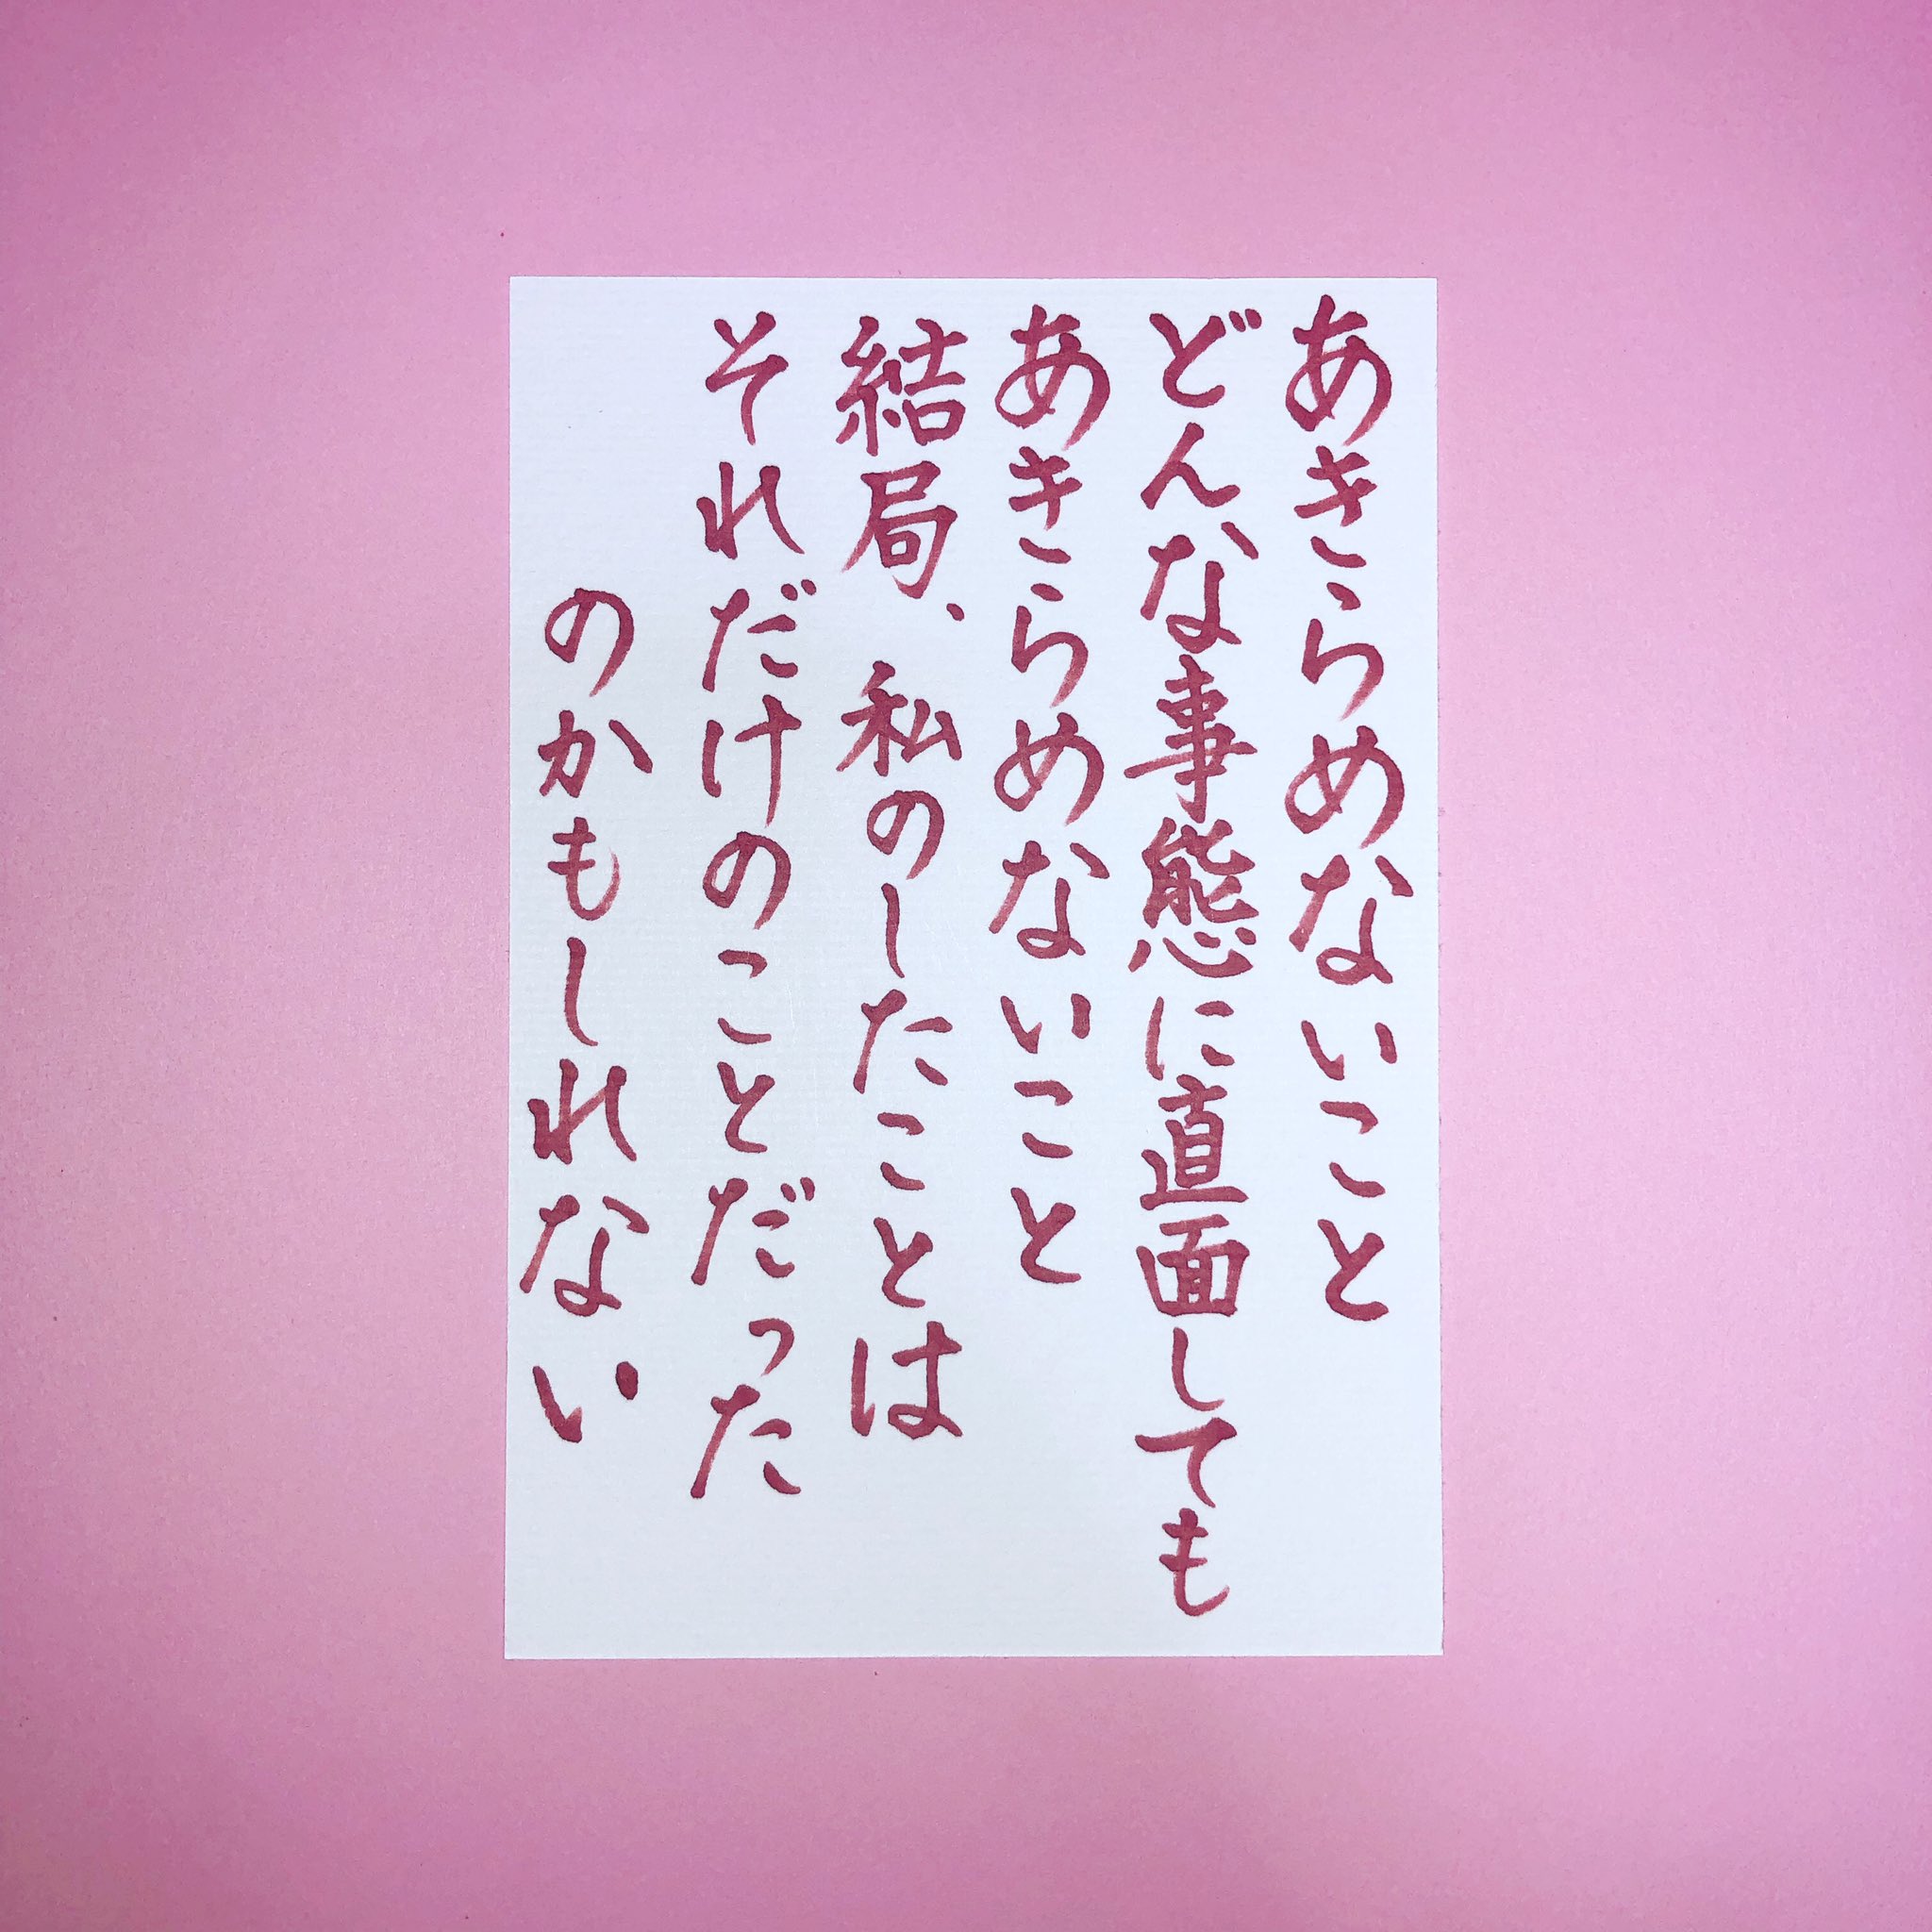 あきらめないこと
どんな事態に直面しても
あきらめないこと
結局、私のしたことは
それだけのことだった
のかもしれない